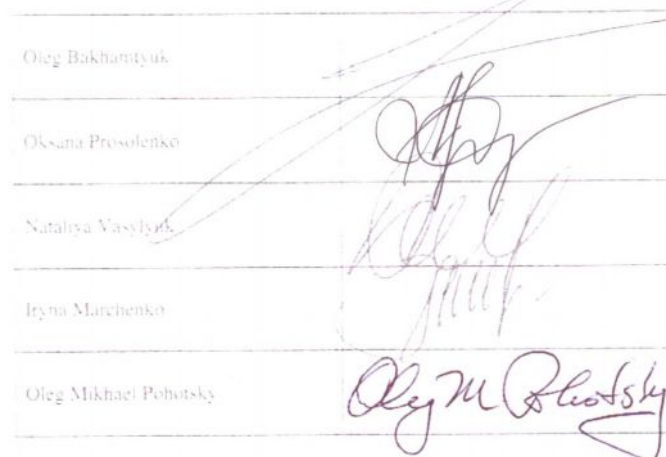 Oleg Bakhamtyuk
Oksana Prosolenko
Nataliya Vasylyuk
Iryna Marchenko
Oleg Mikhael Pohotsky
Oleg M Pohotsky